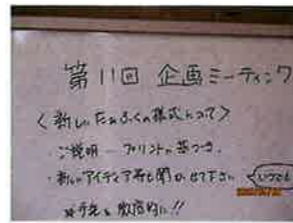 第11回 企画ミーティング
〈新しいたあふくの様式について〉
・ご説明 ― プリントに基づき、
・新しいアイディア等も聞かせて下さい
いつでも
手洗を徹底的に!!